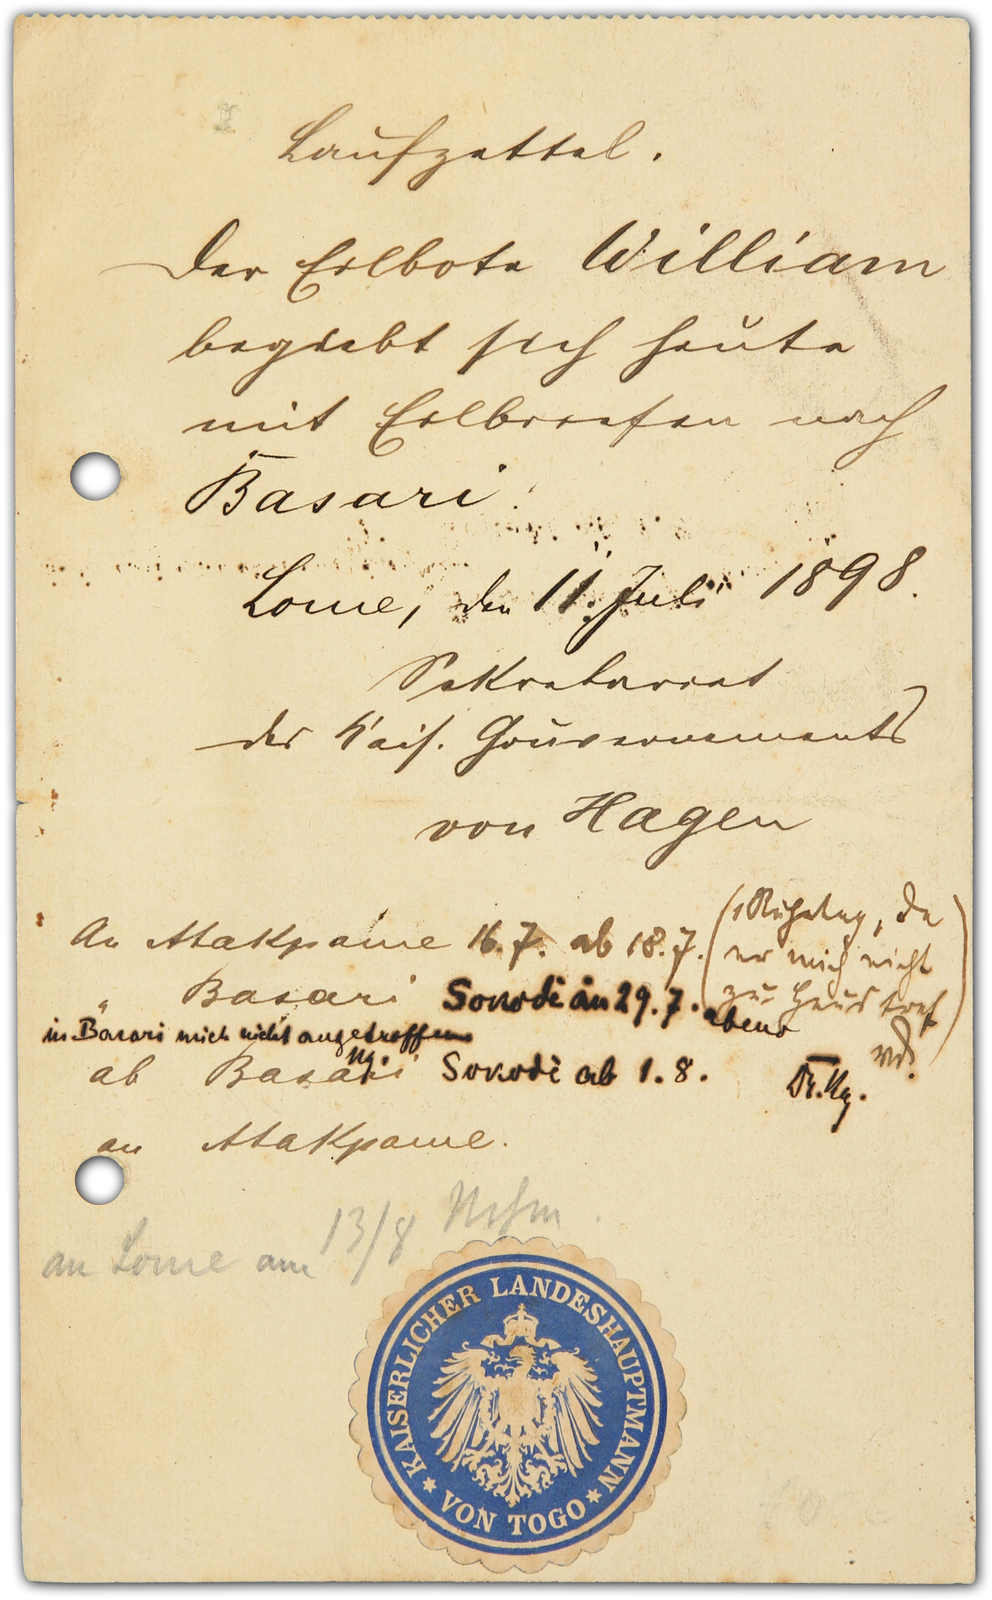 Laufzettel.
Der Eilbote William
begiebt sich heute
mit Eilbriefen nach
Basari.
Lome, den 11. Juli 1898.
Sekretariat
des Kais. Gouvernements
von Hagen
An Atakpame 16.7. ab 18.7. (1 Ruhetag, da
er mich nicht
zu Haus traf
vD.)
" Basari Sokodè an 29.7. abens
in Basari mich nicht angetroffen
ab Basari Sokodè ab 1.8.
Dr. Kg.
an Atakpame.
an Lome am 13/8 Nchm.
KAISERLICHER LANDESHAUPTMANN
* VON TOGO *